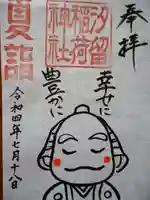 奉拝
汐留
稲荷
神社
幸せに
豊かに
夏詣
令和四年七月十八日